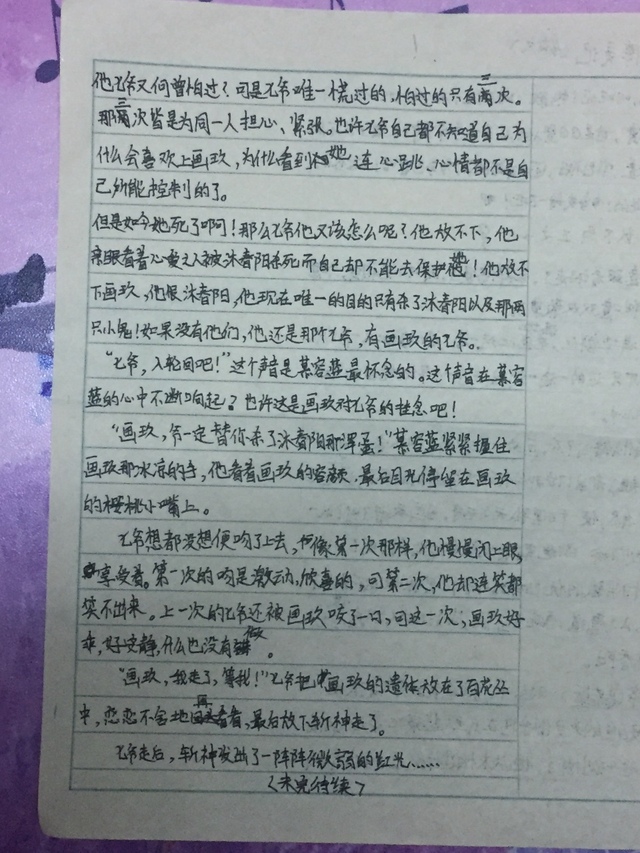 他七爷又何曾怕过？可是七爷唯一慌过的，怕过的只有三次。
那三次皆是为同一人担心、紧张。也许七爷自己都不知道自己为
什么会喜欢上画玖，为什么看到她连心跳、心情都不是自
己所能控制的了。
但是如今她死了啊！那么七爷他又该怎么呢？他放不下，他
亲眼看着心爱之人被沐春阳杀死而自己却不能去保护她！他放不
下画玖，他恨沐春阳，他现在唯一的目的只有杀了沐春阳以及那两
只小鬼！如果没有他们，他还是那个七爷，有画玖的七爷。
“七爷，入轮回吧！”这个声音是慕容蓝最怀念的。这个声音在慕容
蓝的心中不断响起？也许这是画玖对七爷的挂念吧！
“画玖，爷一定替你杀了沐春阳那浑蛋！”慕容蓝紧紧握住
画玖那冰凉的手，他看着画玖的容颜，最后目光停留在画玖
的樱桃小嘴上。
七爷想都没想便吻了上去，像第一次那样，他慢慢闭上眼，
享受着。第一次的吻是激动，欣喜的，可第二次，他却连笑都
笑不出来。上一次的七爷还被画玖咬了一口，回这一次；画玖好
乖，好安静，什么也没有做。
“画玖，我走了，等我！”七爷把画玖的遗体放在了百花丛
中，恋恋不舍地再看看，最后放下斩神走了。
七爷走后，斩神发出了一阵阵微弱的红光……
〈未完待续〉